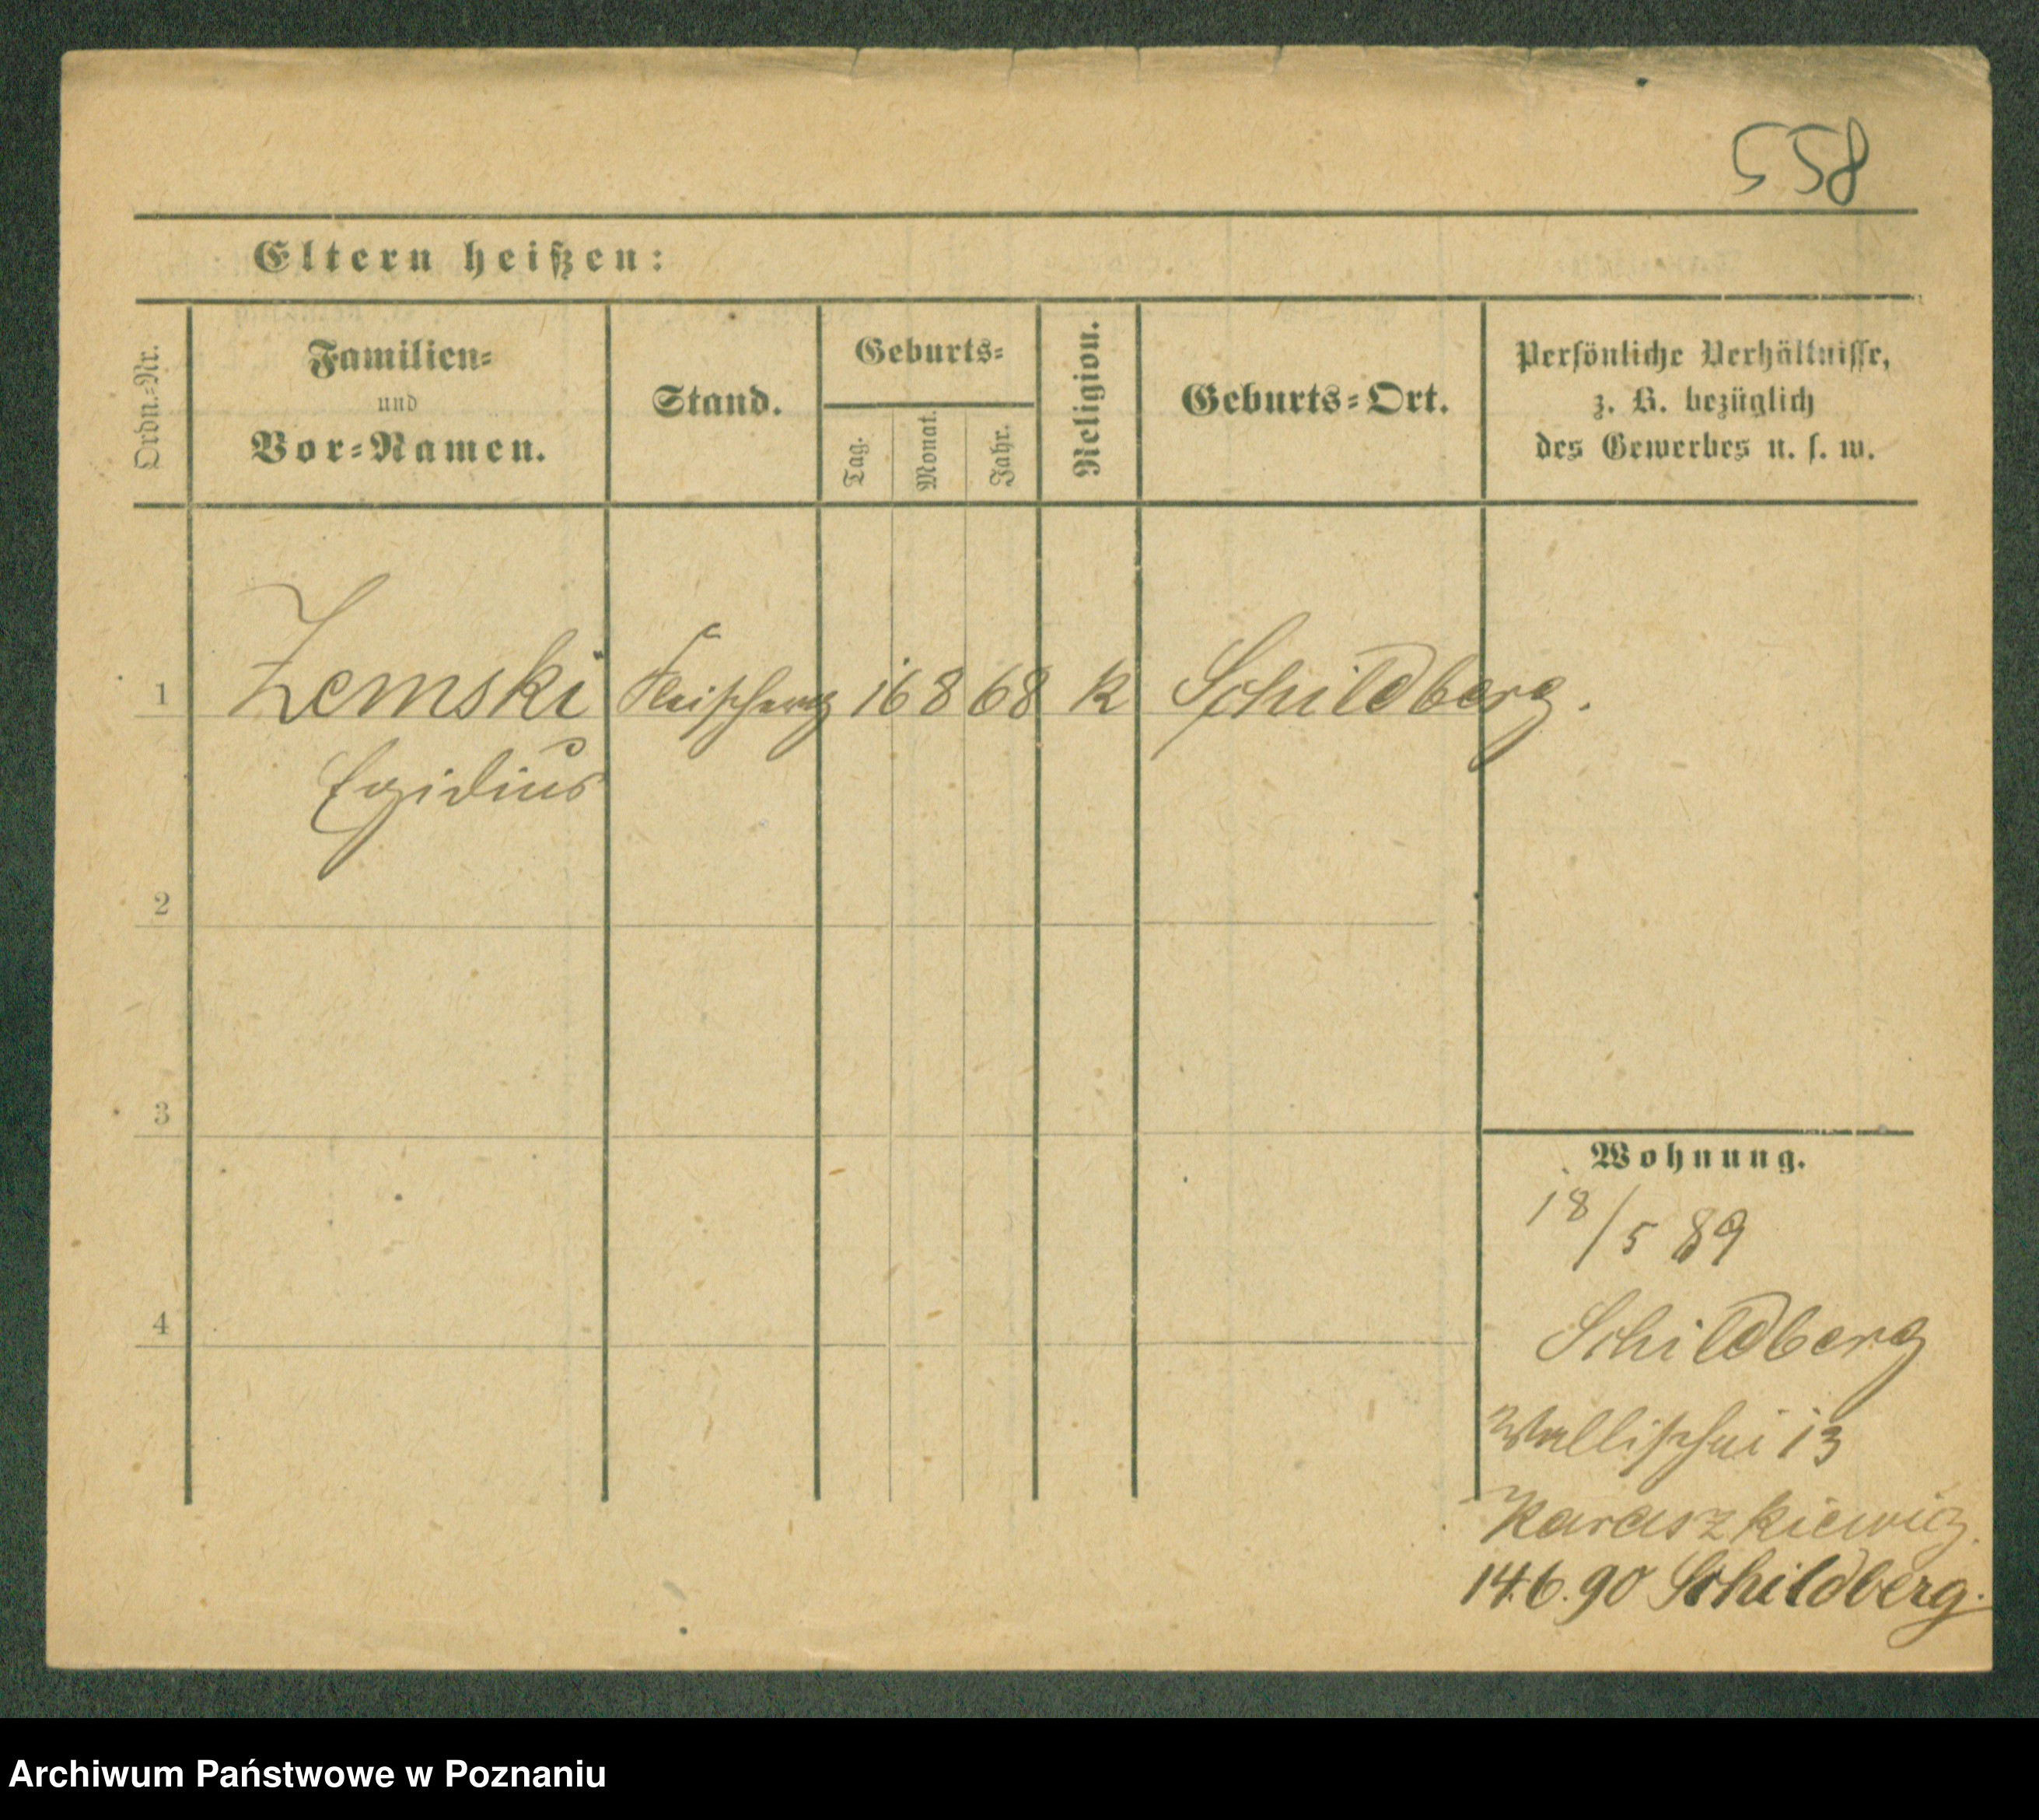 558
Eltern heißen:
Ordn.-Nr.
Familien-
und
Vor-Namen.
Stand.
Geburts-
Tag.
Monat.
Jahr.
Religion.
Geburts-Ort.
Persönliche Verhältnisse,
z. B. bezüglich
des Gewerbes u. s. w.
1 Zemski 16 8 68 K Schildberg.
Egidius
2
3
4
Wohnung.
18/5 89
Schildberg
Wallischei 13
Karaszkiewicz
14.6.90 Schildberg.
Archiwum Państwowe w Poznaniu